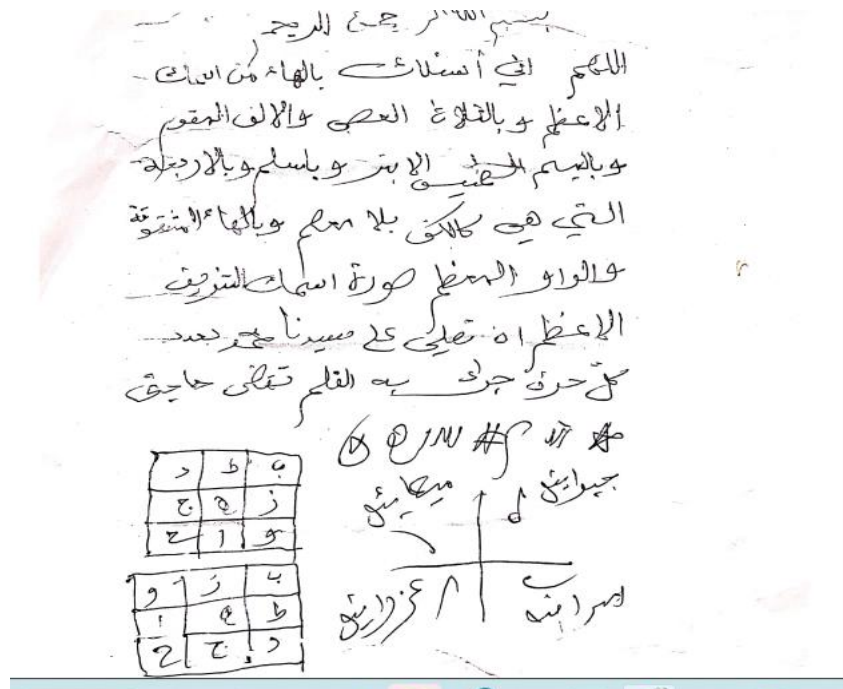 بسم الله الرحمن الرحيم
اللهم اني أسئلك بالهاء من اسمك
الاعظم و بالثلاث العصي والالف المقوم
وبالميم الطميس الابتر و باسلم وبالاربعة
التي هي كالكف بلا معصم وبالهاء المشقوقة
والواو المعظم صورة اسمك الشريف
الاعظم ان تصلي على سيدنا محمد بعدد
كل حرف جرى به القلم تقضى حاجتي
جبرائيل
ميكائيل
ب ط د
ز ه ج
و ا ح
ب ز و
ط ه ا
د ج ح
اسرافيل
عزرائيل